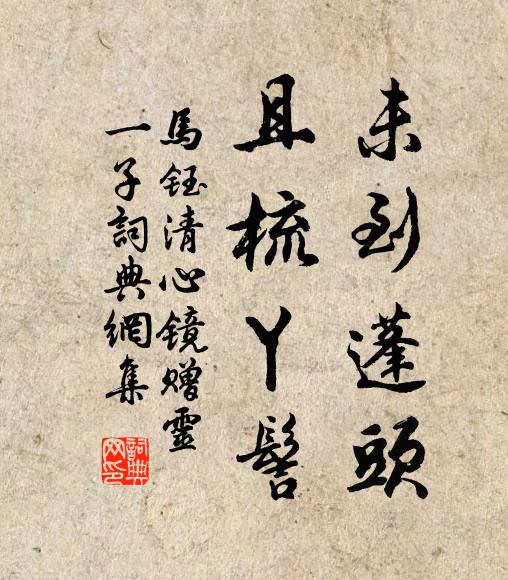 未到蓬頭
且梳丫髻
馬鈺清心镜赠靈
一子詞典網集
詞典
网印